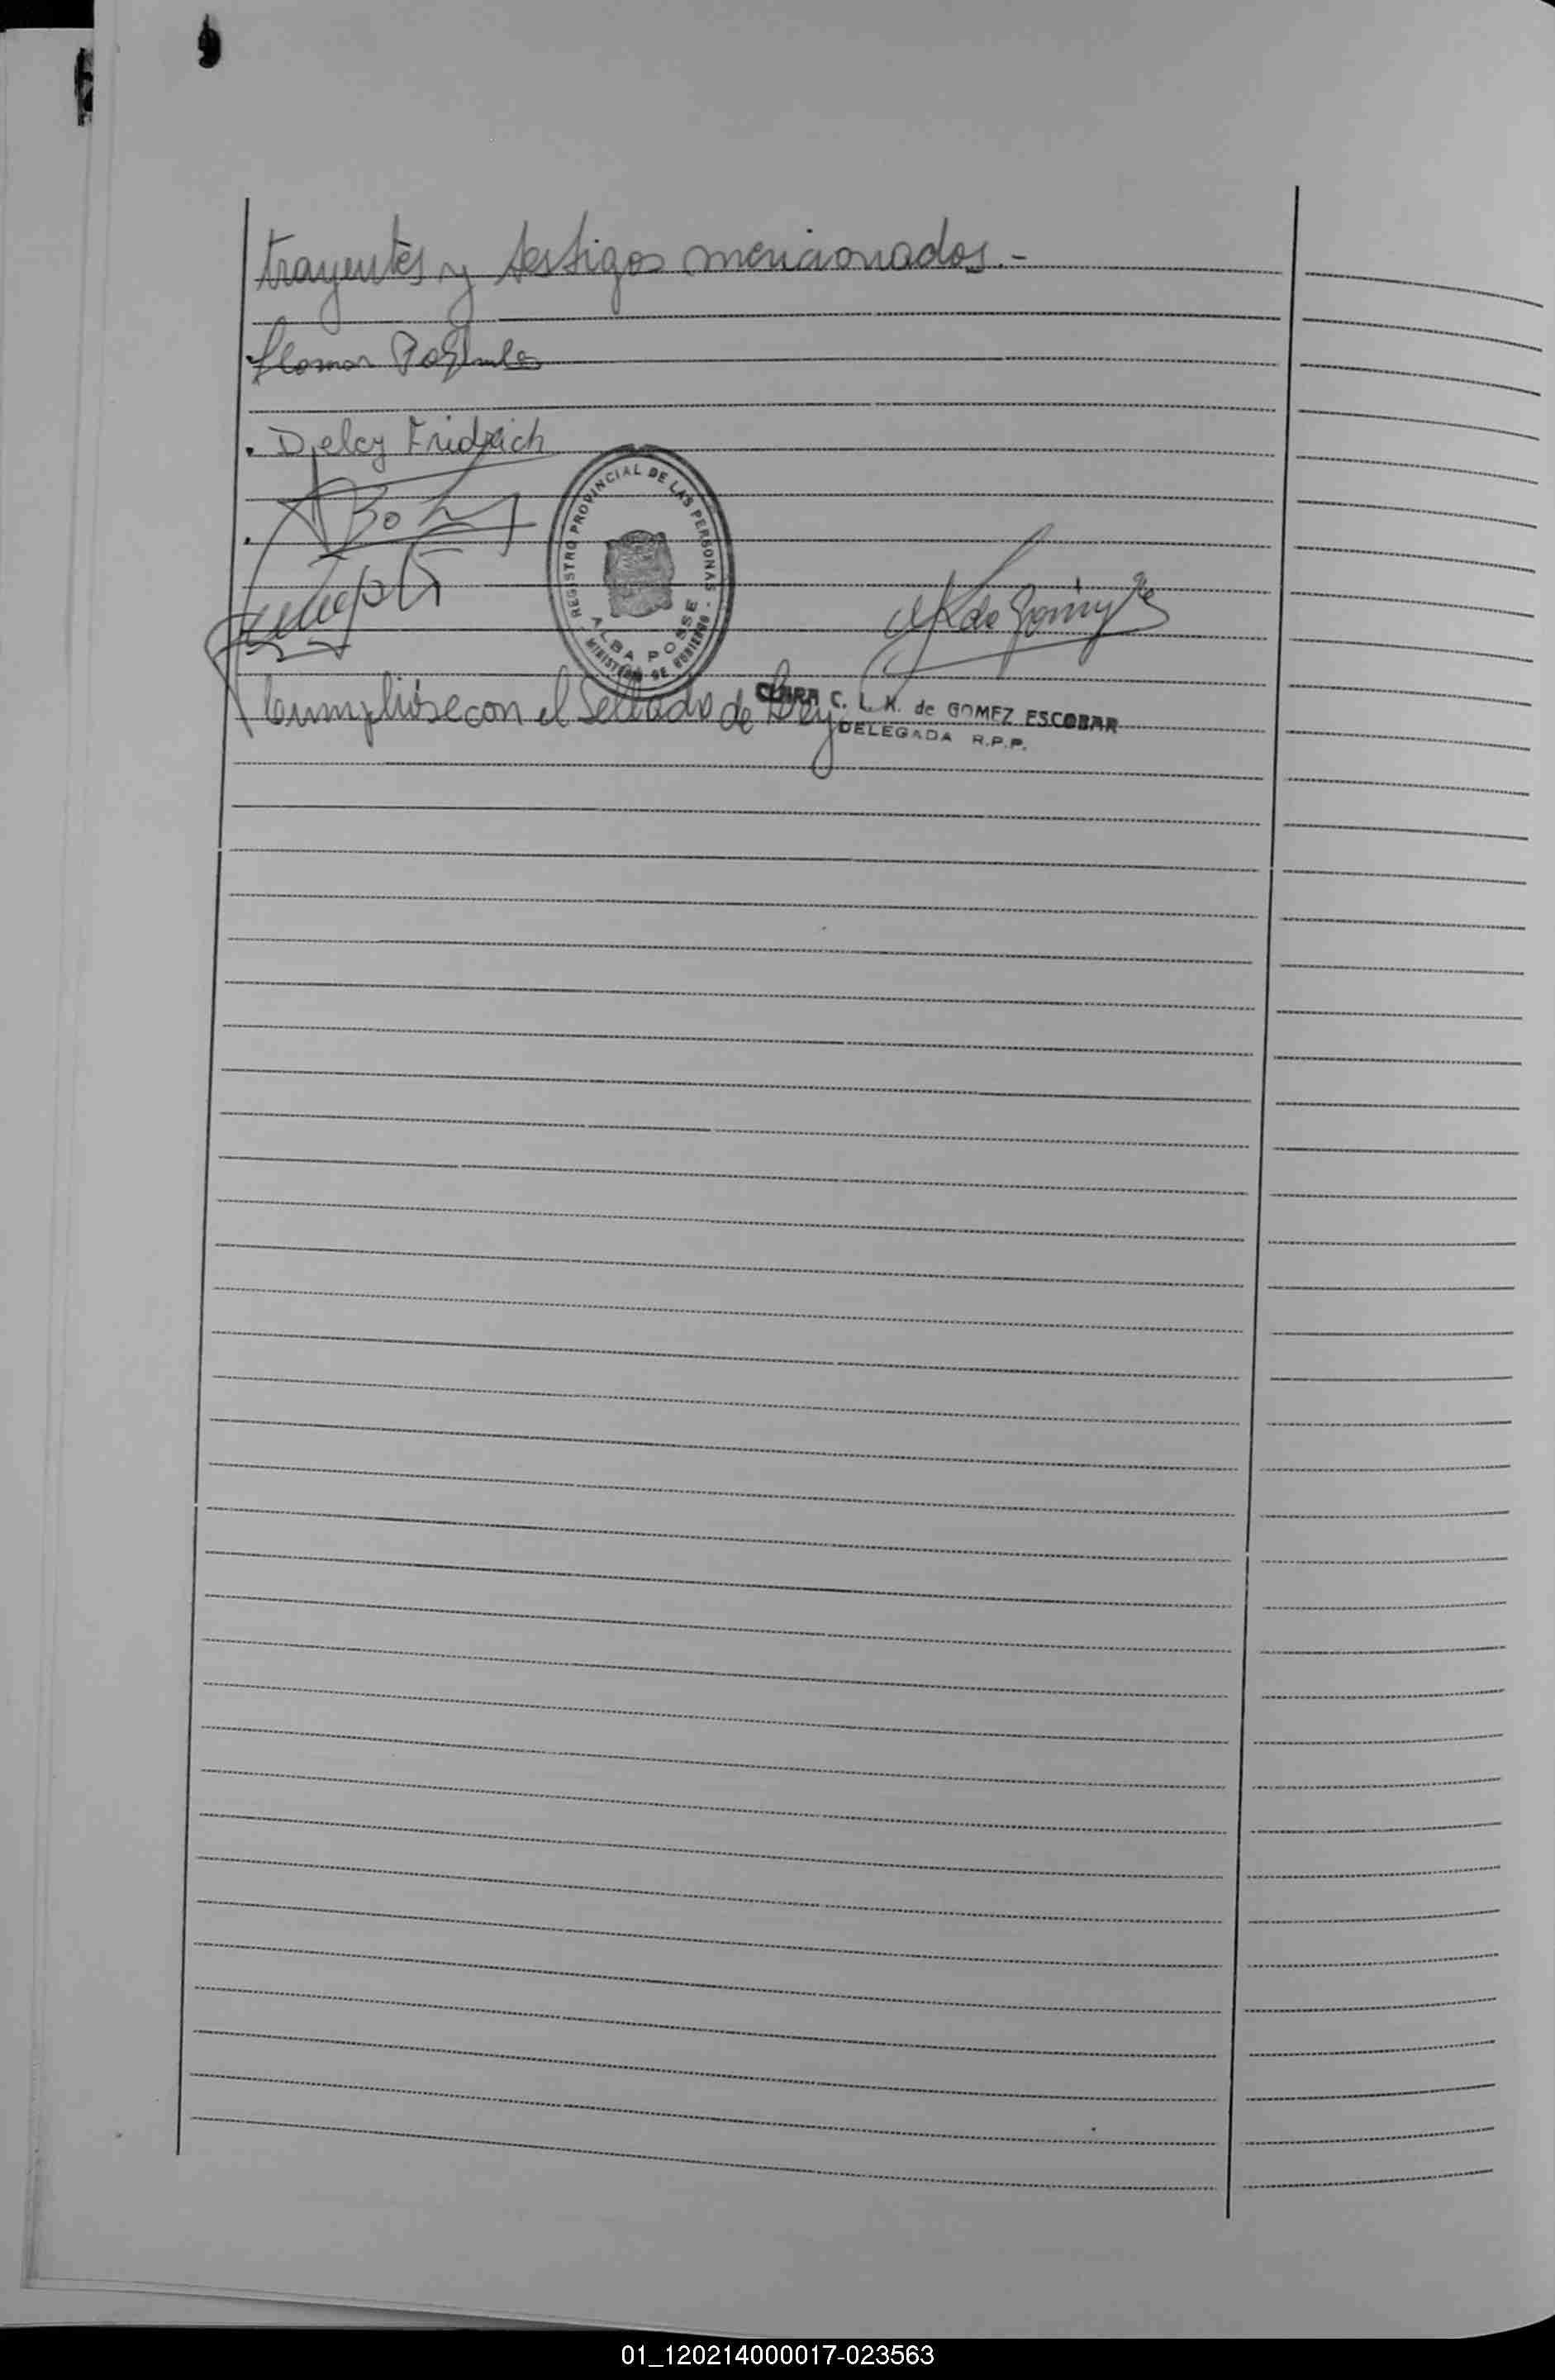 trayentes y testigos mencionados.-
Delcy Fridrich
REGISTRO PROVINCIAL DE LAS PERSONAS
ALBA POSSE
MINISTERIO DE GOBIERNO
Cumplióse con el Sellado de Ley
CLARA C. L. K. de GOMEZ ESCOBAR
DELEGADA R.P.P.
01_120214000017-023563